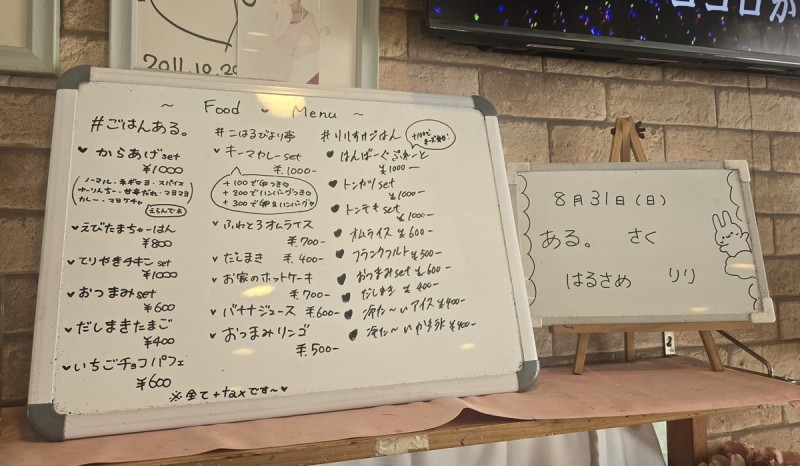 2011.10.20
ココロが
~ Food Menu ~
#ごはんある。
からあげset
¥1000
(ノーマル・ネギロヨ・スパイス
ゆーりんちー・甘辛だれ・マヨマヨ
カレー・マヨケチャ)
えらんでネ
えびたまちゃーはん
¥800
てりやきチキンset
¥1000
おつまみset
¥600
だしまきたまご
¥400
いちごチョコパフェ
¥600
#こはるびより亭
キーマカレーset
¥.1000-
+100で卵つき
+200でハンバーグつき
+300で卵&ハンバーグ
ふわとろオムライス
¥700-
だしまき ¥.400-
お家のホットケーキ
¥700-
バナナジュース ¥600-
おつまみリンゴ
¥.500-
#りりすけごはん
+100で
はんばーぐぷれーと
¥1000-
トンカツset
¥1000-
トンテキset
¥1000-
オムライス ¥600-
フランクフルト ¥500-
おつまみset ¥600-
だしまき ¥400-
冷た〜いアイス ¥400-
冷た〜いかき氷 ¥400-
※全て+taxです〜
8月31日(日)
ある。 さく
はるさめ りり